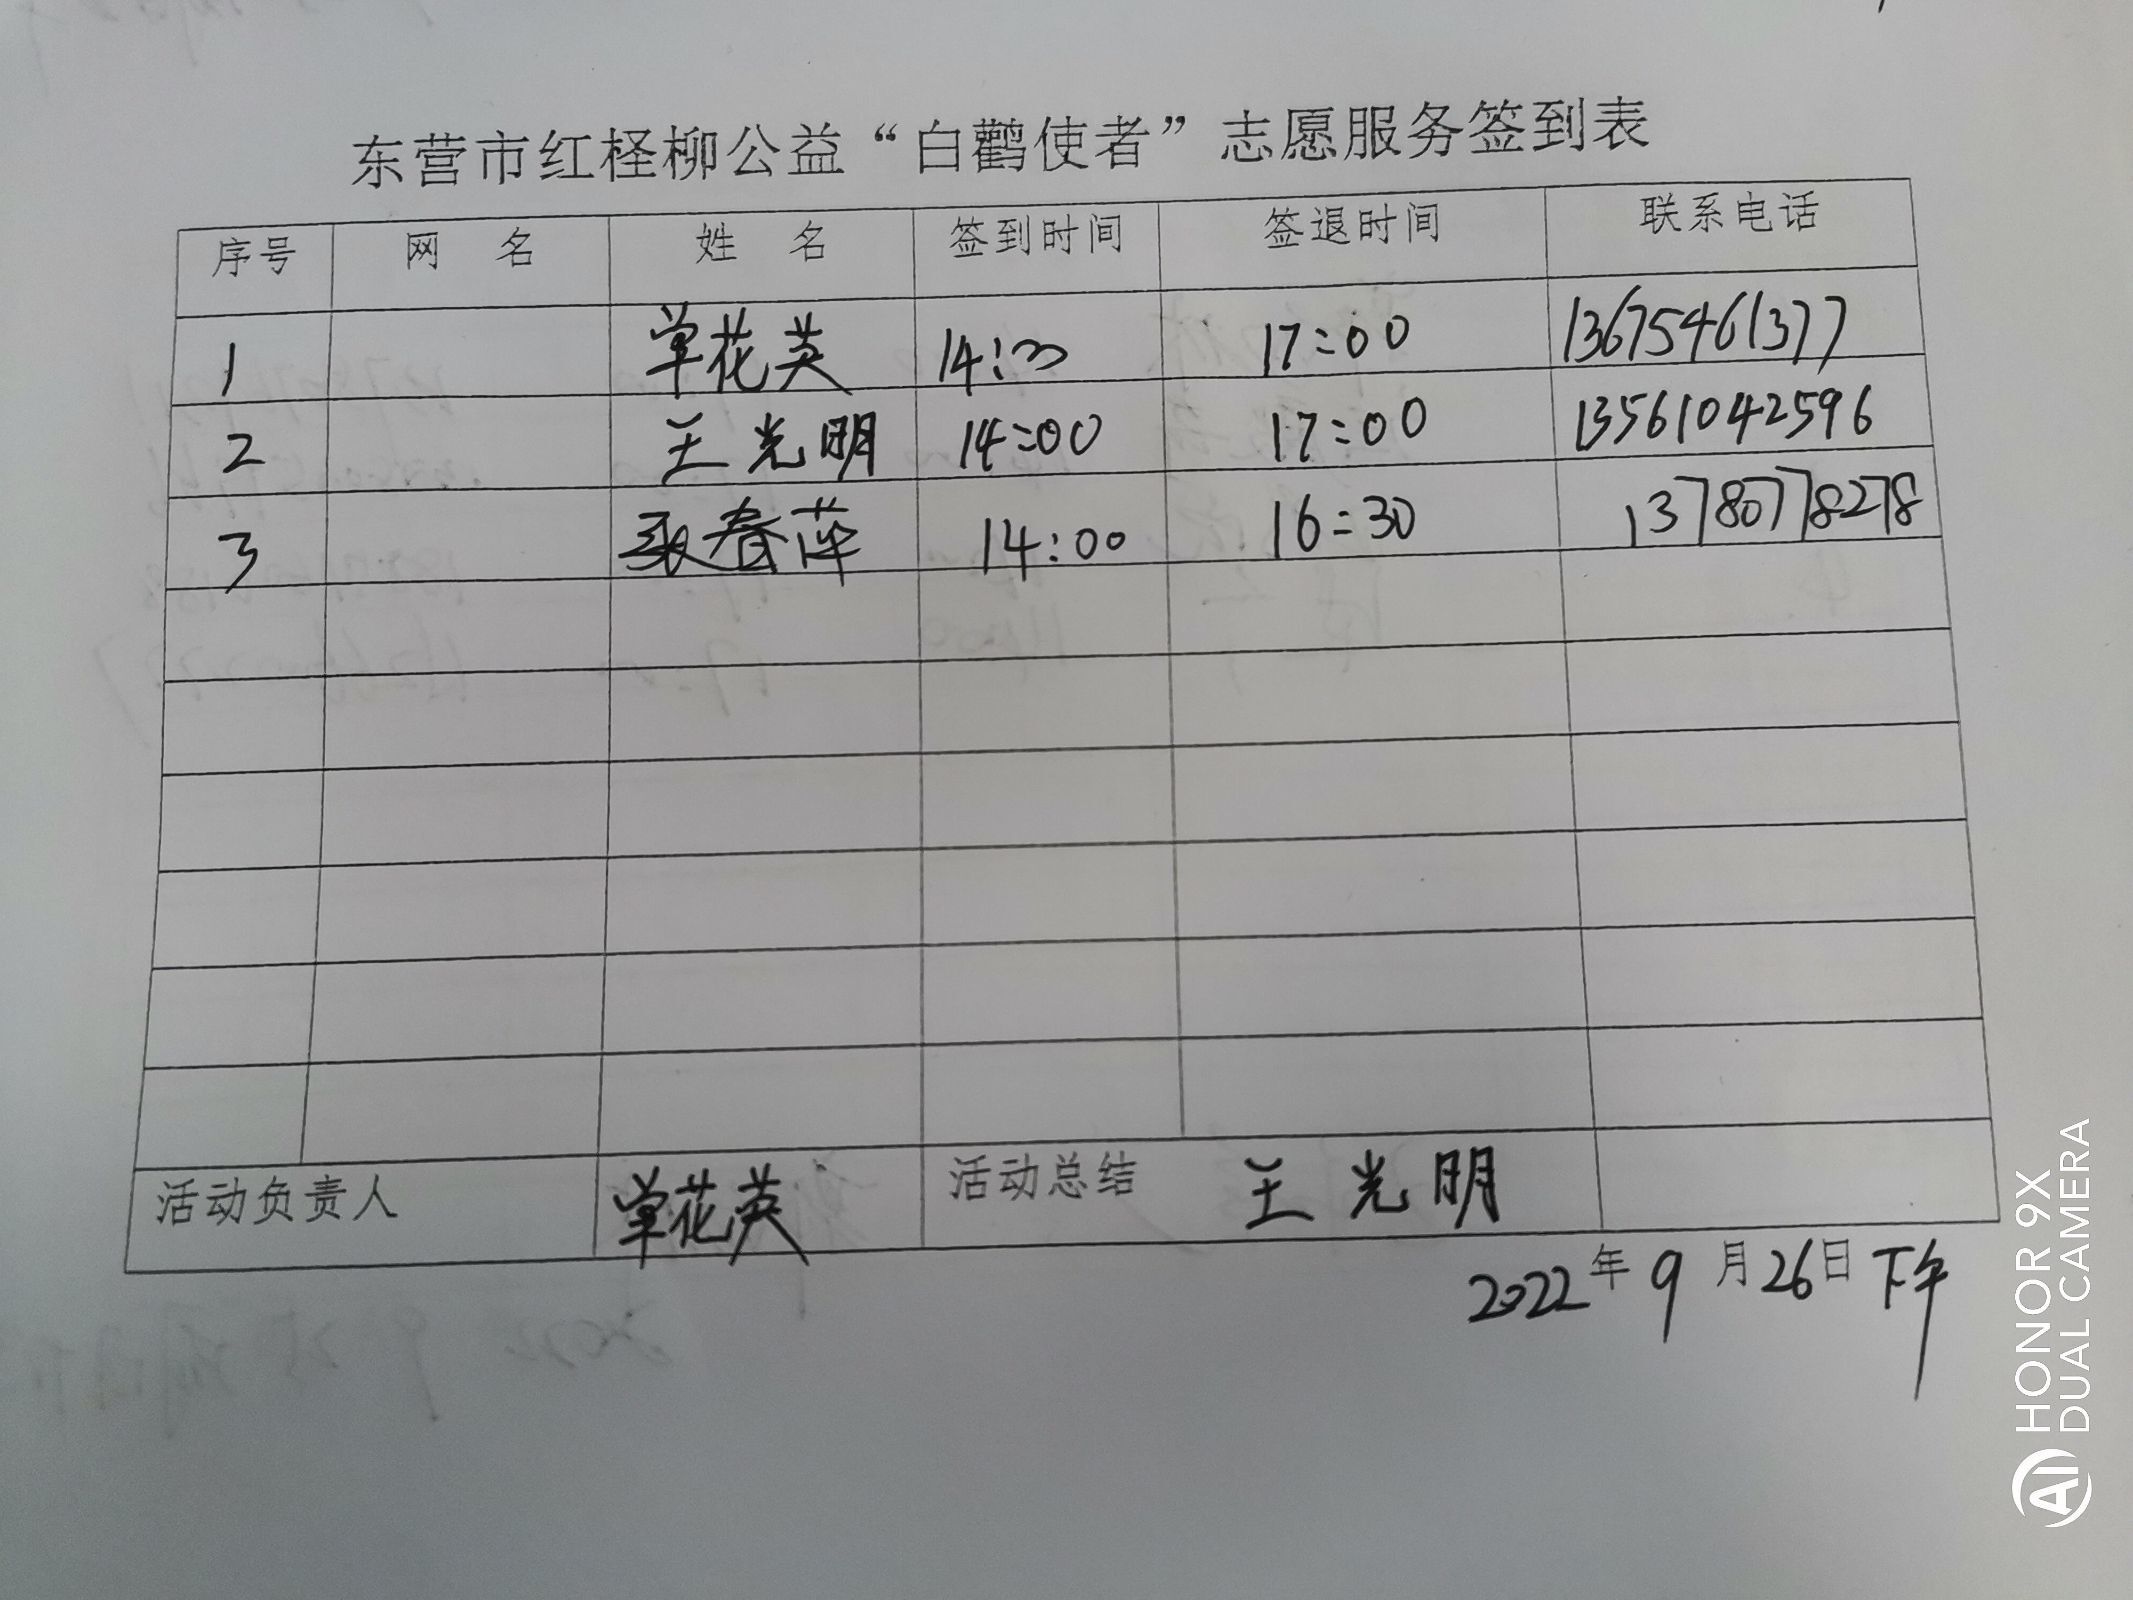 东营市红柽柳公益“白鹳使者”志愿服务签到表
序号 网 名 姓 名 签到时间 签退时间 联系电话
1 单花英 14:00 17:00 13675461377
2 王光明 14:00 17:00 13561042596
3 春萍 14:00 16:30 13780778278
活动负责人 单花英 活动总结 王光明
2022年9月26日下午
HONOR 9X
AI DUAL CAMERA